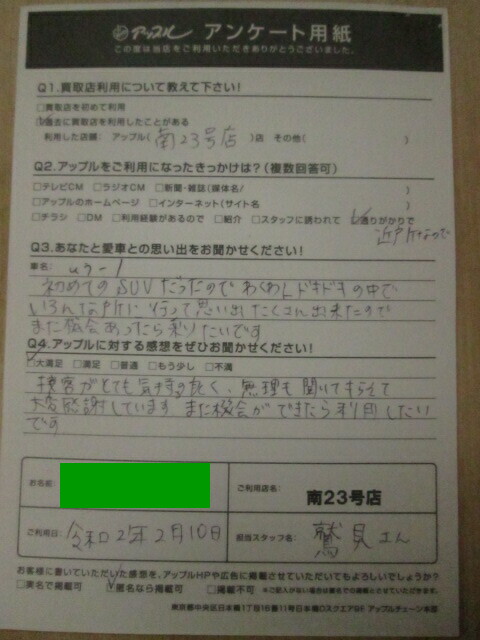 アップル アンケート用紙
この度は当店をご利用いただきありがとうございました。
Q1.買取店利用について教えて下さい!
□買取店を初めて利用
☑過去に買取店を利用したことがある
利用した店舗: アップル(南23号店)店 その他( )
Q2.アップルをご利用になったきっかけは?(複数回答可)
□テレビCM □ラジオCM □新聞・雑誌(媒体名/ )
□アップルのホームページ □インターネット(サイト名 )
□チラシ □DM □利用経験があるので □紹介 □スタッフに誘われて ☑通りがかりで
近所なので
Q3.あなたと愛車との思い出をお聞かせください!
車名:
初めてのSUVだったのでわくわくドキドキの中で
いろんな所に行って思い出たくさん出来たので
また機会あったら乗りたいです
Q4.アップルに対する感想をぜひお聞かせください!
☑大満足 □満足 □普通 □もう少し □不満
接客がとても気持ち良く、無理も聞いてもらえて
大変感謝しています また機会ができたら利用したい
です
お名前:
ご利用店名:
南23号店
ご利用日: 令和2年2月10日
担当スタッフ名: 鷲見さん
お客様に書いていただいた感想を、アップルHPや広告に掲載させていただいてもよろしいでしょうか?
□実名で掲載可 ☑匿名なら掲載可 □掲載不可 ※ご記入がない場合は匿名での掲載とさせていただきます。